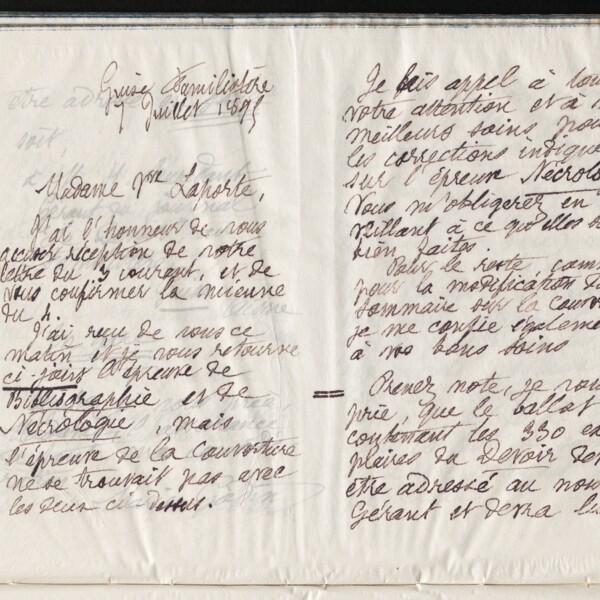 Guise Familistère
7 Juillet 1895
Madame Vve Laporte,
J'ai l'honneur de vous
accuser réception de votre
lettre du 3 courant, et de
vous confirmer la mienne
du 4.
J'ai reçu de vous ce
matin et je vous retourne
ci-joint l'épreuve de
Bibliographie et de
Nécrologie, mais
l'épreuve de la couverture
ne se trouvait pas avec
les deux ci-dessus.
Je fais appel à tou
votre attention et à
meilleurs soins pou
les corrections indiqué
sur l'épreuve Nécrolo
Vous m'obligerez en
veillant à ce qu'elles so
bien faites.
Pour le reste, comm
pour la modification du
sommaire sur la couver
je me confie égaleme
à vos bons soins
= Prenez note, je vous
prie, que le ballot
contenant les 330 ex
plaires du Devoir doi
être adressé au nou
Gérant et devra lui